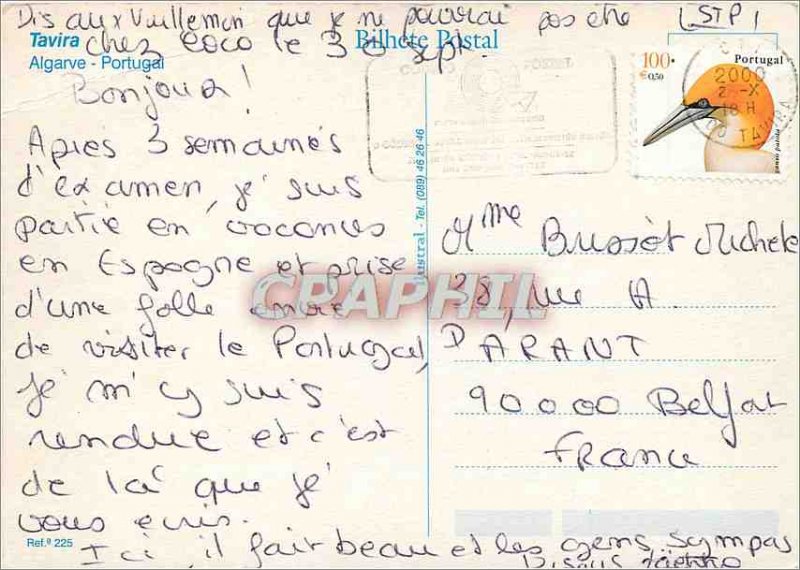 Dis aux Vuillemin que je ne pourrai pas être
chez Coco le 30 sept.
LSTP
Tavira
Algarve - Portugal
Bilhete Postal
100
€ 0,50
Portugal
2000
TAVIRA
Bonjour !
Après 3 semaines
d'examen, je suis
partie en vacances
en Espagne et prise
d'une folle envie
de visiter le Portugal,
je m'y suis
rendue et c'est
de là que je
vous écris.
Ici, il fait beau et les gens sympas
Bisous
Mme Bussòt Michele
38, rue A.
PARANT
90000 Belfort
France
Tel. (089) 46 26 46
CPAPHIL
Ref.ª 225